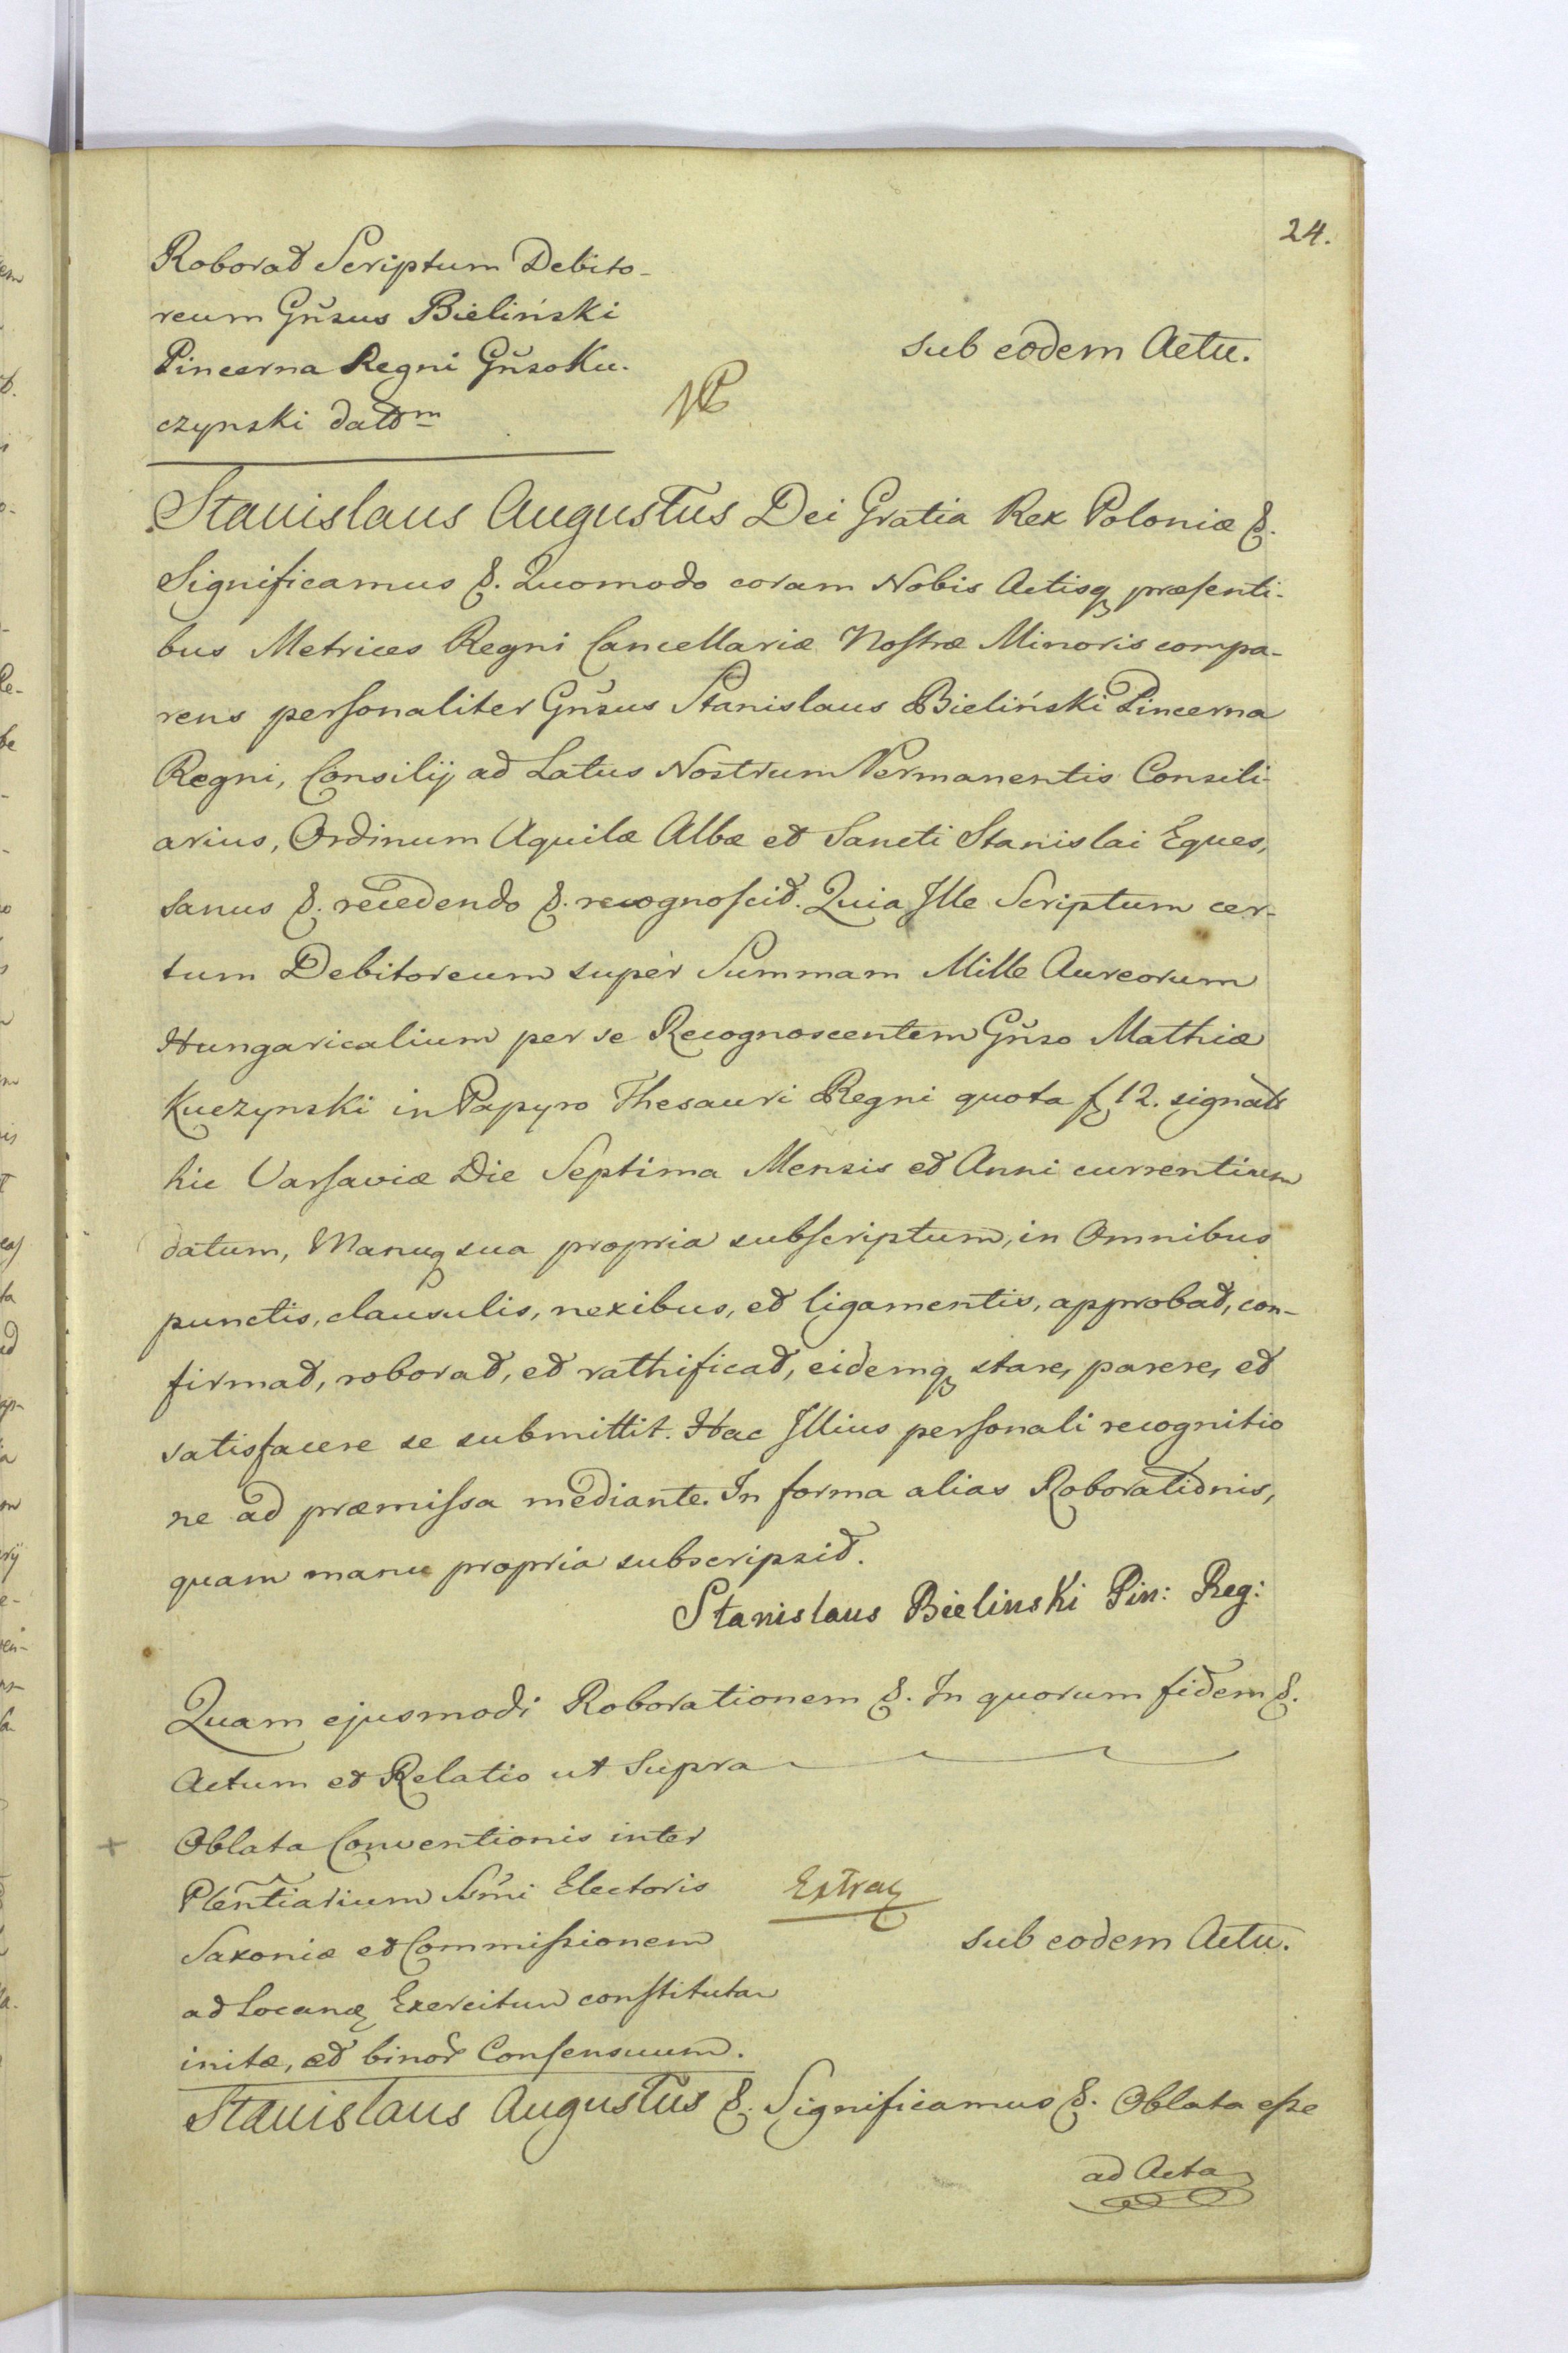 24.
Roborat Scriptum Debito-
reum Gñsus Bieliński
Pincerna Regni Gñso Ku-
czynski dattm
sub eodem Actu.
Stanislaus Augustus Dei Gratia Rex Poloniæ &.
Significamus &. Quomodo coram Nobis Actisq præsenti-
bus Metrices Regni Cancellariæ Nostræ Minoris compa-
rens personaliter Gñsus Stanislaus Bieliński Pincerna
Regni, Consilij ad Latus Nostrum Permanentis Consili-
arius, Ordinum Aquilæ Albæ et Sancti Stanislai Eques,
sanus &. recedendo &. recognoscit. Quia Ille Scriptum cer-
tum Debitoreum super Summam Mille Aureorum
Hungaricalium per se Recognoscentem Gñso Mathiæ
Kuczynski in Papyro Thesauri Regni quota f 12. signato
hic Varsaviæ Die Septima Mensis et Anni currentium
datum, Manuq sua propria subscriptum, in Omnibus
punctis, clausulis, nexibus, et ligamentis, approbat, con-
firmat, roborat, et rathificat, eidemq stare, parere, et
satisfacere se submittit. Hac Illius personali recognitio
ne ad præmissa mediante. In forma alias Roborationis,
quam manu propria subscripsit.
Stanislaus Bielinski Pin: Reg:
Quam ejusmodi Roborationem &. In quorum fidem &.
Actum et Relatio ut Supra
Oblata Conventionis inter
Plentiarium Smi Electoris
Extrad
Saxoniæ et Commissionem
sub eodem Actu.
ad Locand Exercitum constitutam
initæ, et binor Consensuum.
Stanislaus Augustus &. Significamus &. Oblata esse
ad Acta